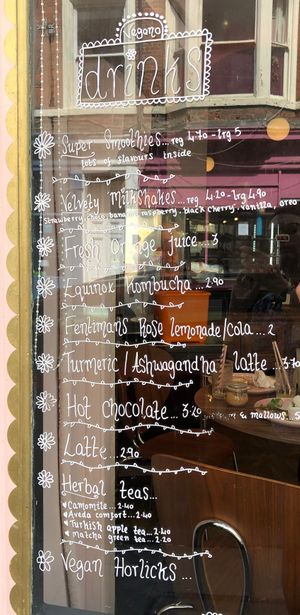 Vegano
drinks
Super Smoothies... reg 4.70 - lrg 5
lots of flavours inside
Velvety Milkshakes... reg 4.20 - lrg 4.90
Strawberry, choc, banana, raspberry, black cherry, vanilla, oreo
Fresh Orange juice... 3
Equinox Kombucha... 2.90
Fentimans Rose lemonade/cola... 2
Turmeric/Ashwagandha latte... 3.
Hot chocolate... 3.20 cream & mallows...
Latte... 2.90
Herbal teas...
Camomile... 2.40
Aveda comfort... 2.40
Turkish apple tea... 2.40
Matcha green tea... 2.20
Vegan Horlicks...